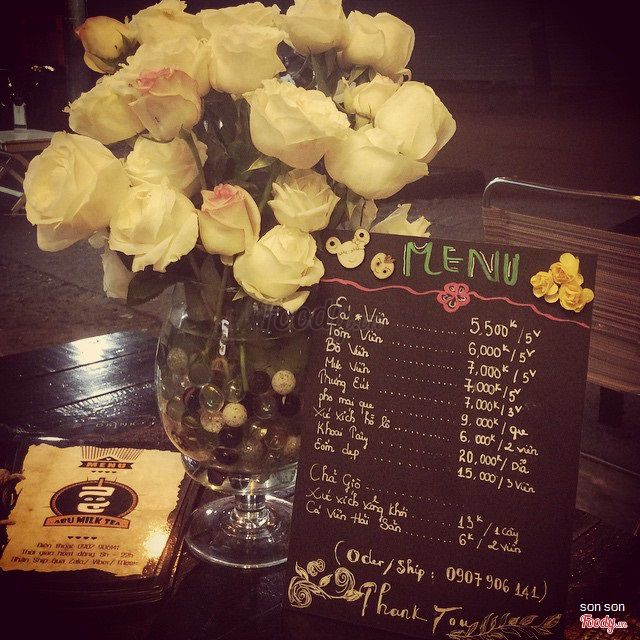 MENU
Cá Viên ........ 5,500k/5v
Tôm Viên ........ 6,000k/5v
Bò Viên ........ 7,000k/5v
Mực Viên ........ 7,000k/5v
Trứng Cút ........ 7,000k/3v
pho mai que ........ 9.000k/que
Xúc xích hồ lô ........ 6.000k/2 viên
Khoai Tây ........ 20,000k/Dĩa
Cốm dẹp ........ 15,000k/3 Viên
Chả Giò
Xúc xích xông khói ........ 13k/1 cây
Cá Viên Hải Sản ........ 6k/2 viên
(Oder/Ship: 0907 906 141)
Thank You
MENU
ABU MILK TEA
Điện thoại: 0907 906141
Thời gian hoạt động: 8h - 22h
Nhận Ship qua Zalo/ Viber/
son son
Foody.vn